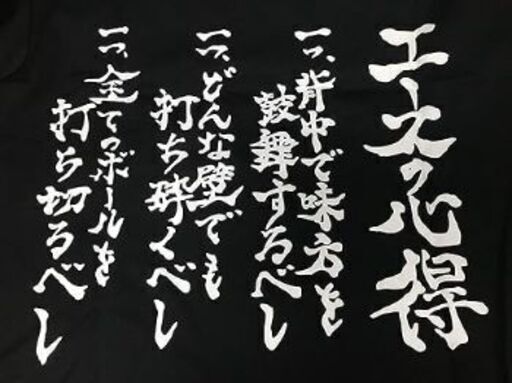 エースの心得
一つ、背中で味方を
鼓舞するべし
一つ、どんな壁でも
打ち砕くべし
一つ、全てのボールを
打ち切るべし